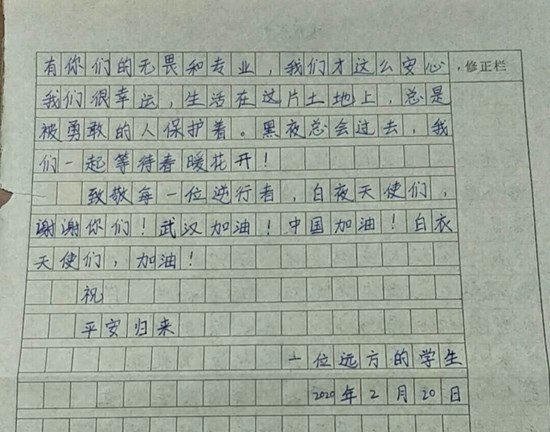 有你们的无畏和专业，我们才这么安心，修正栏
我们很幸运，生活在这片土地上，总是
被勇敢的人保护着。黑夜总会过去，我
们一起等待春暖花开！
致敬每一位逆行者，白夜天使们，
谢谢你们！武汉加油！中国加油！白衣
天使们，加油！
祝
平安归来
一位远方的学生
2020年2月20日